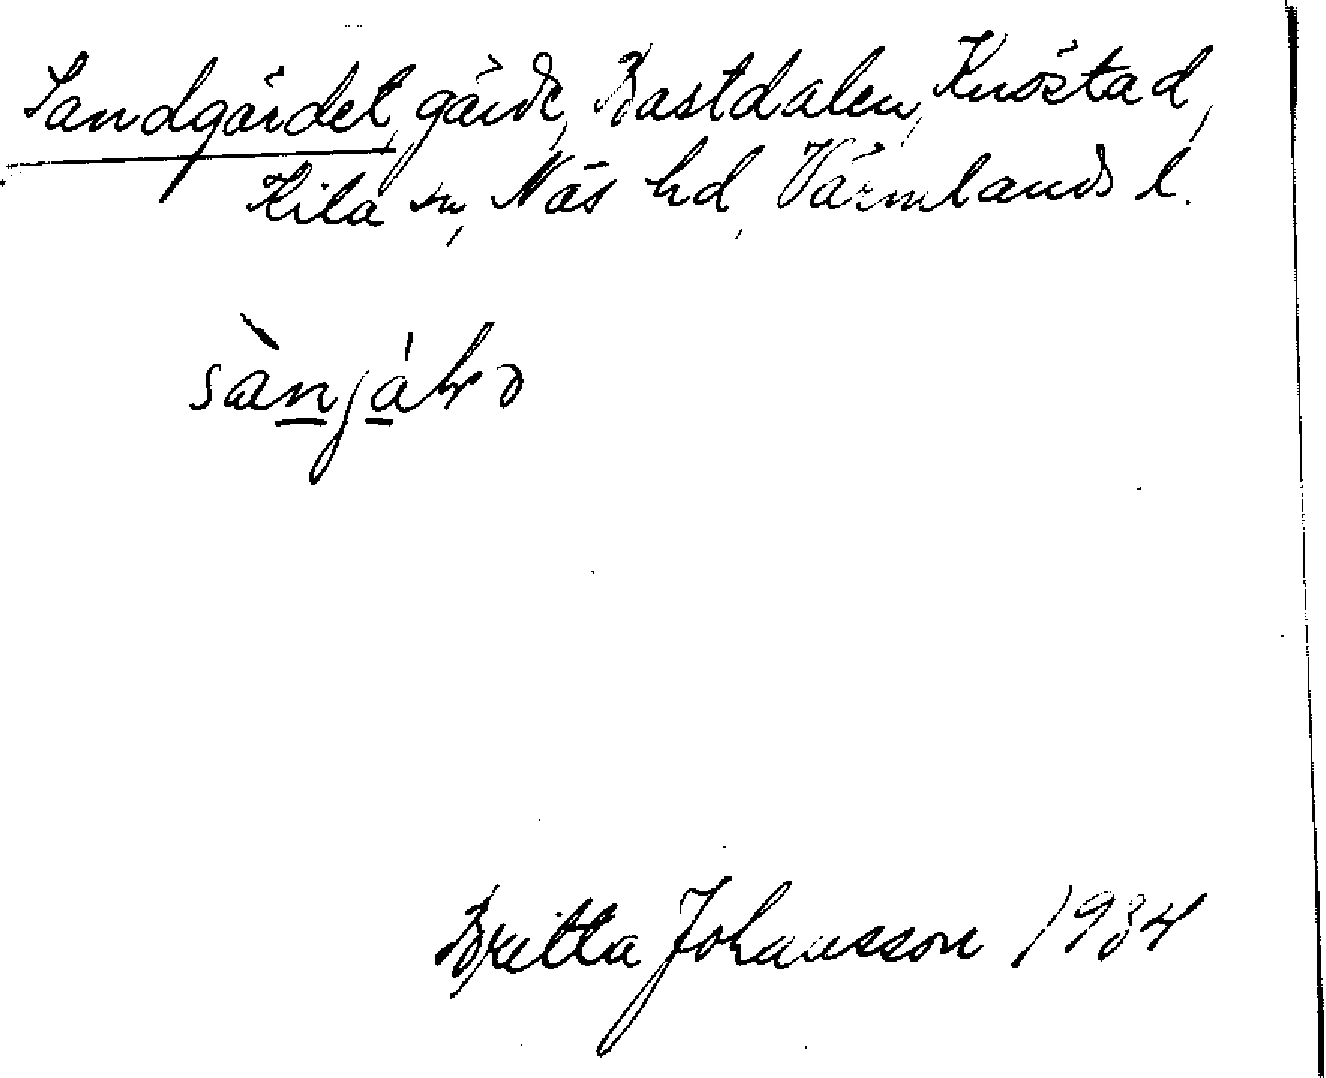 Sandgärdet, gärde, Bastdalen, Knöstad,
Kila sn, Näs hd, Värmlands l.
Britta Johansson 1934